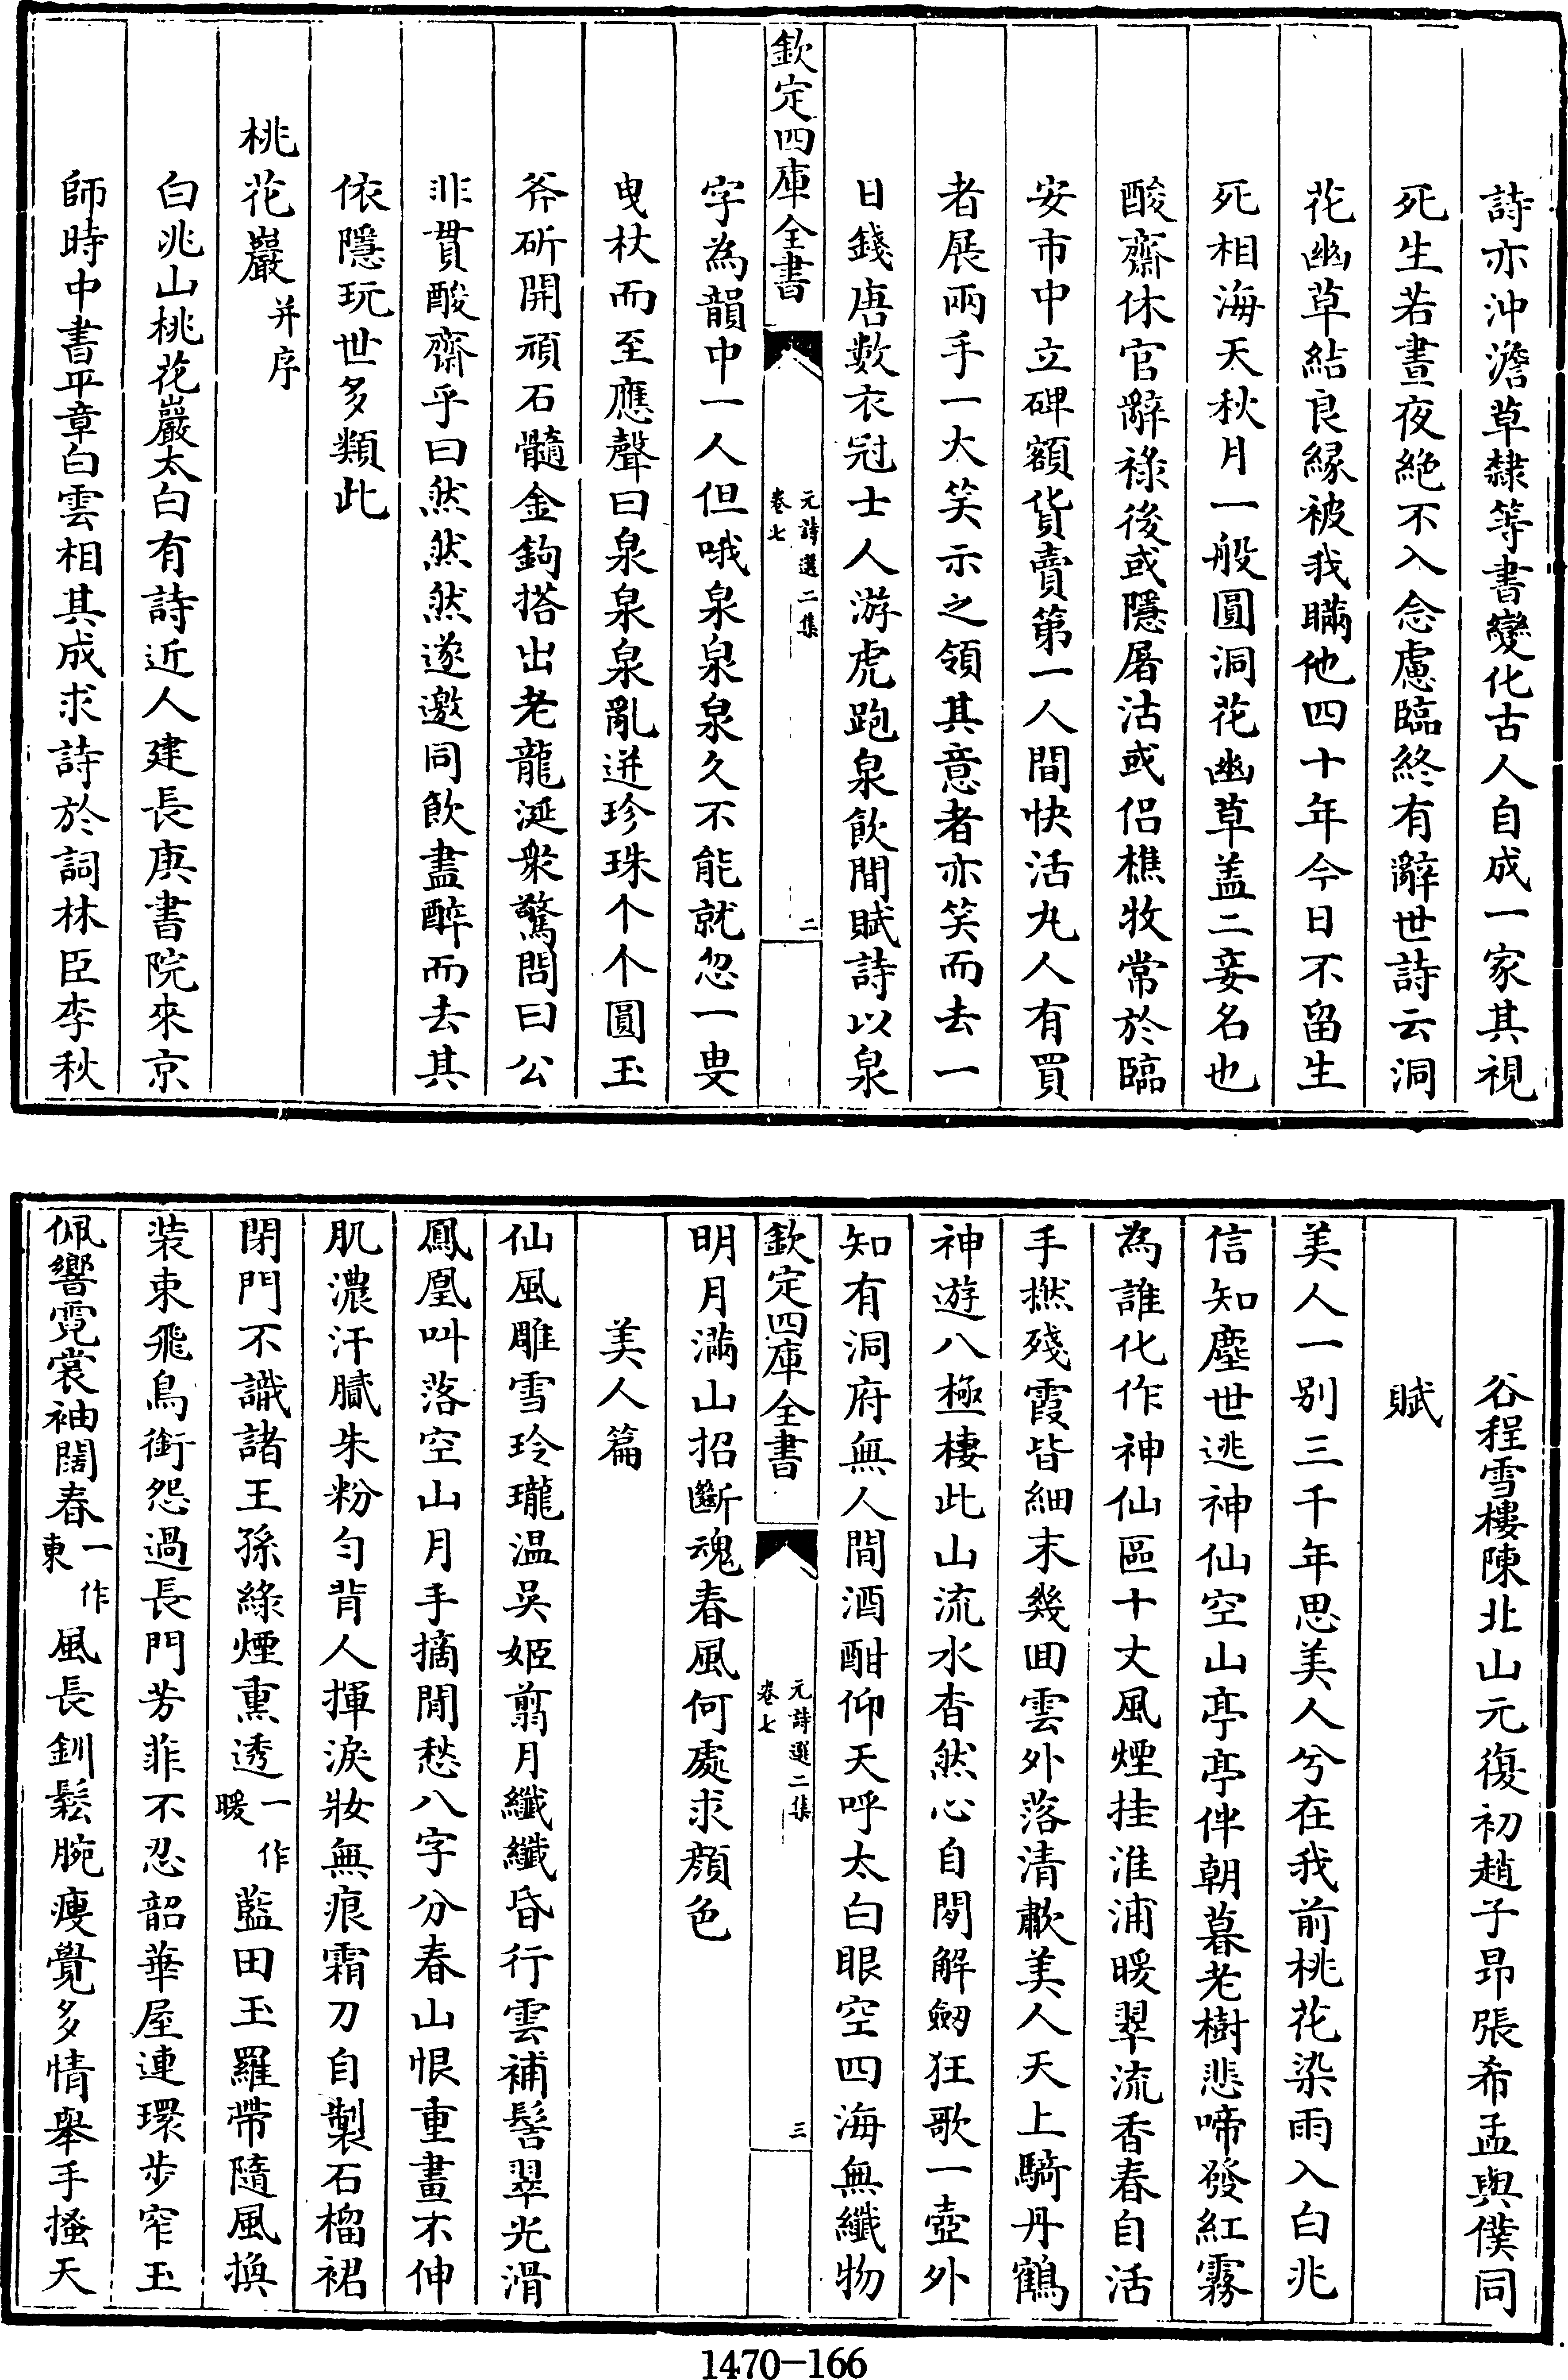 詩亦沖澹草隸等書變化古人自成一家其視
死生若晝夜絶不入念慮臨終有辭世詩云洞
花幽草結良縁被我瞞他四十年今日不留生
死相海天秋月一般圓洞花幽草盖二妾名也
酸齋休官辭禄後或隱屠沽或侣樵牧常於臨
安市中立碑額貨賣第一人間快活丸人有買
者展兩手一大笑示之領其意者亦笑而去一
日錢唐數衣冠士人游虎跑泉飲間賦詩以泉
欽定四庫全書
元詩選二集
卷七
二
字為韻中一人但哦泉泉泉久不能就忽一叟
曳杖而至應聲曰泉泉泉亂迸珍珠个个圓玉
斧斫開頑石髓金鉤搭出老龍涎衆驚問曰公
非貫酸齋乎曰然然然遂邀同飲盡醉而去其
依隱玩世多類此
桃花巖并序
白兆山桃花巖太白有詩近人建長庚書院來京
師時中書平章白雲相其成求詩於詞林臣李秋
谷程雪樓陳北山元復初趙子昂張希孟與僕同
賦
美人一别三千年思美人兮在我前桃花染雨入白兆
信知塵世逃神仙空山亭亭伴朝暮老樹悲啼發紅霧
為誰化作神仙區十丈風煙挂淮浦暖翠流香春自活
手撚殘霞皆細末幾囬雲外落清歗美人天上騎丹鶴
神遊八極棲此山流水杳然心自閒解劒狂歌一壺外
知有洞府無人間酒酣仰天呼太白眼空四海無纖物
欽定四庫全書
元詩選二集
卷七
三
明月滿山招斷魂春風何處求顔色
美人篇
仙風雕雪玲瓏温吳姬翦月纖纖昏行雲補髻翠光滑
鳳凰叫落空山月手摘閒愁八字分春山恨重畫不伸
肌濃汗膩朱粉勻背人揮淚妝無痕霜刀自製石榴裙
閉門不識諸王孫綠煙熏透一作暖藍田玉羅帶隨風換
裝束飛鳥銜怨過長門芳菲不忍韶華屋連環步窄玉
佩響霓裳袖闊春一作東風長釧鬆腕瘦覺多情舉手搔天
1470-166